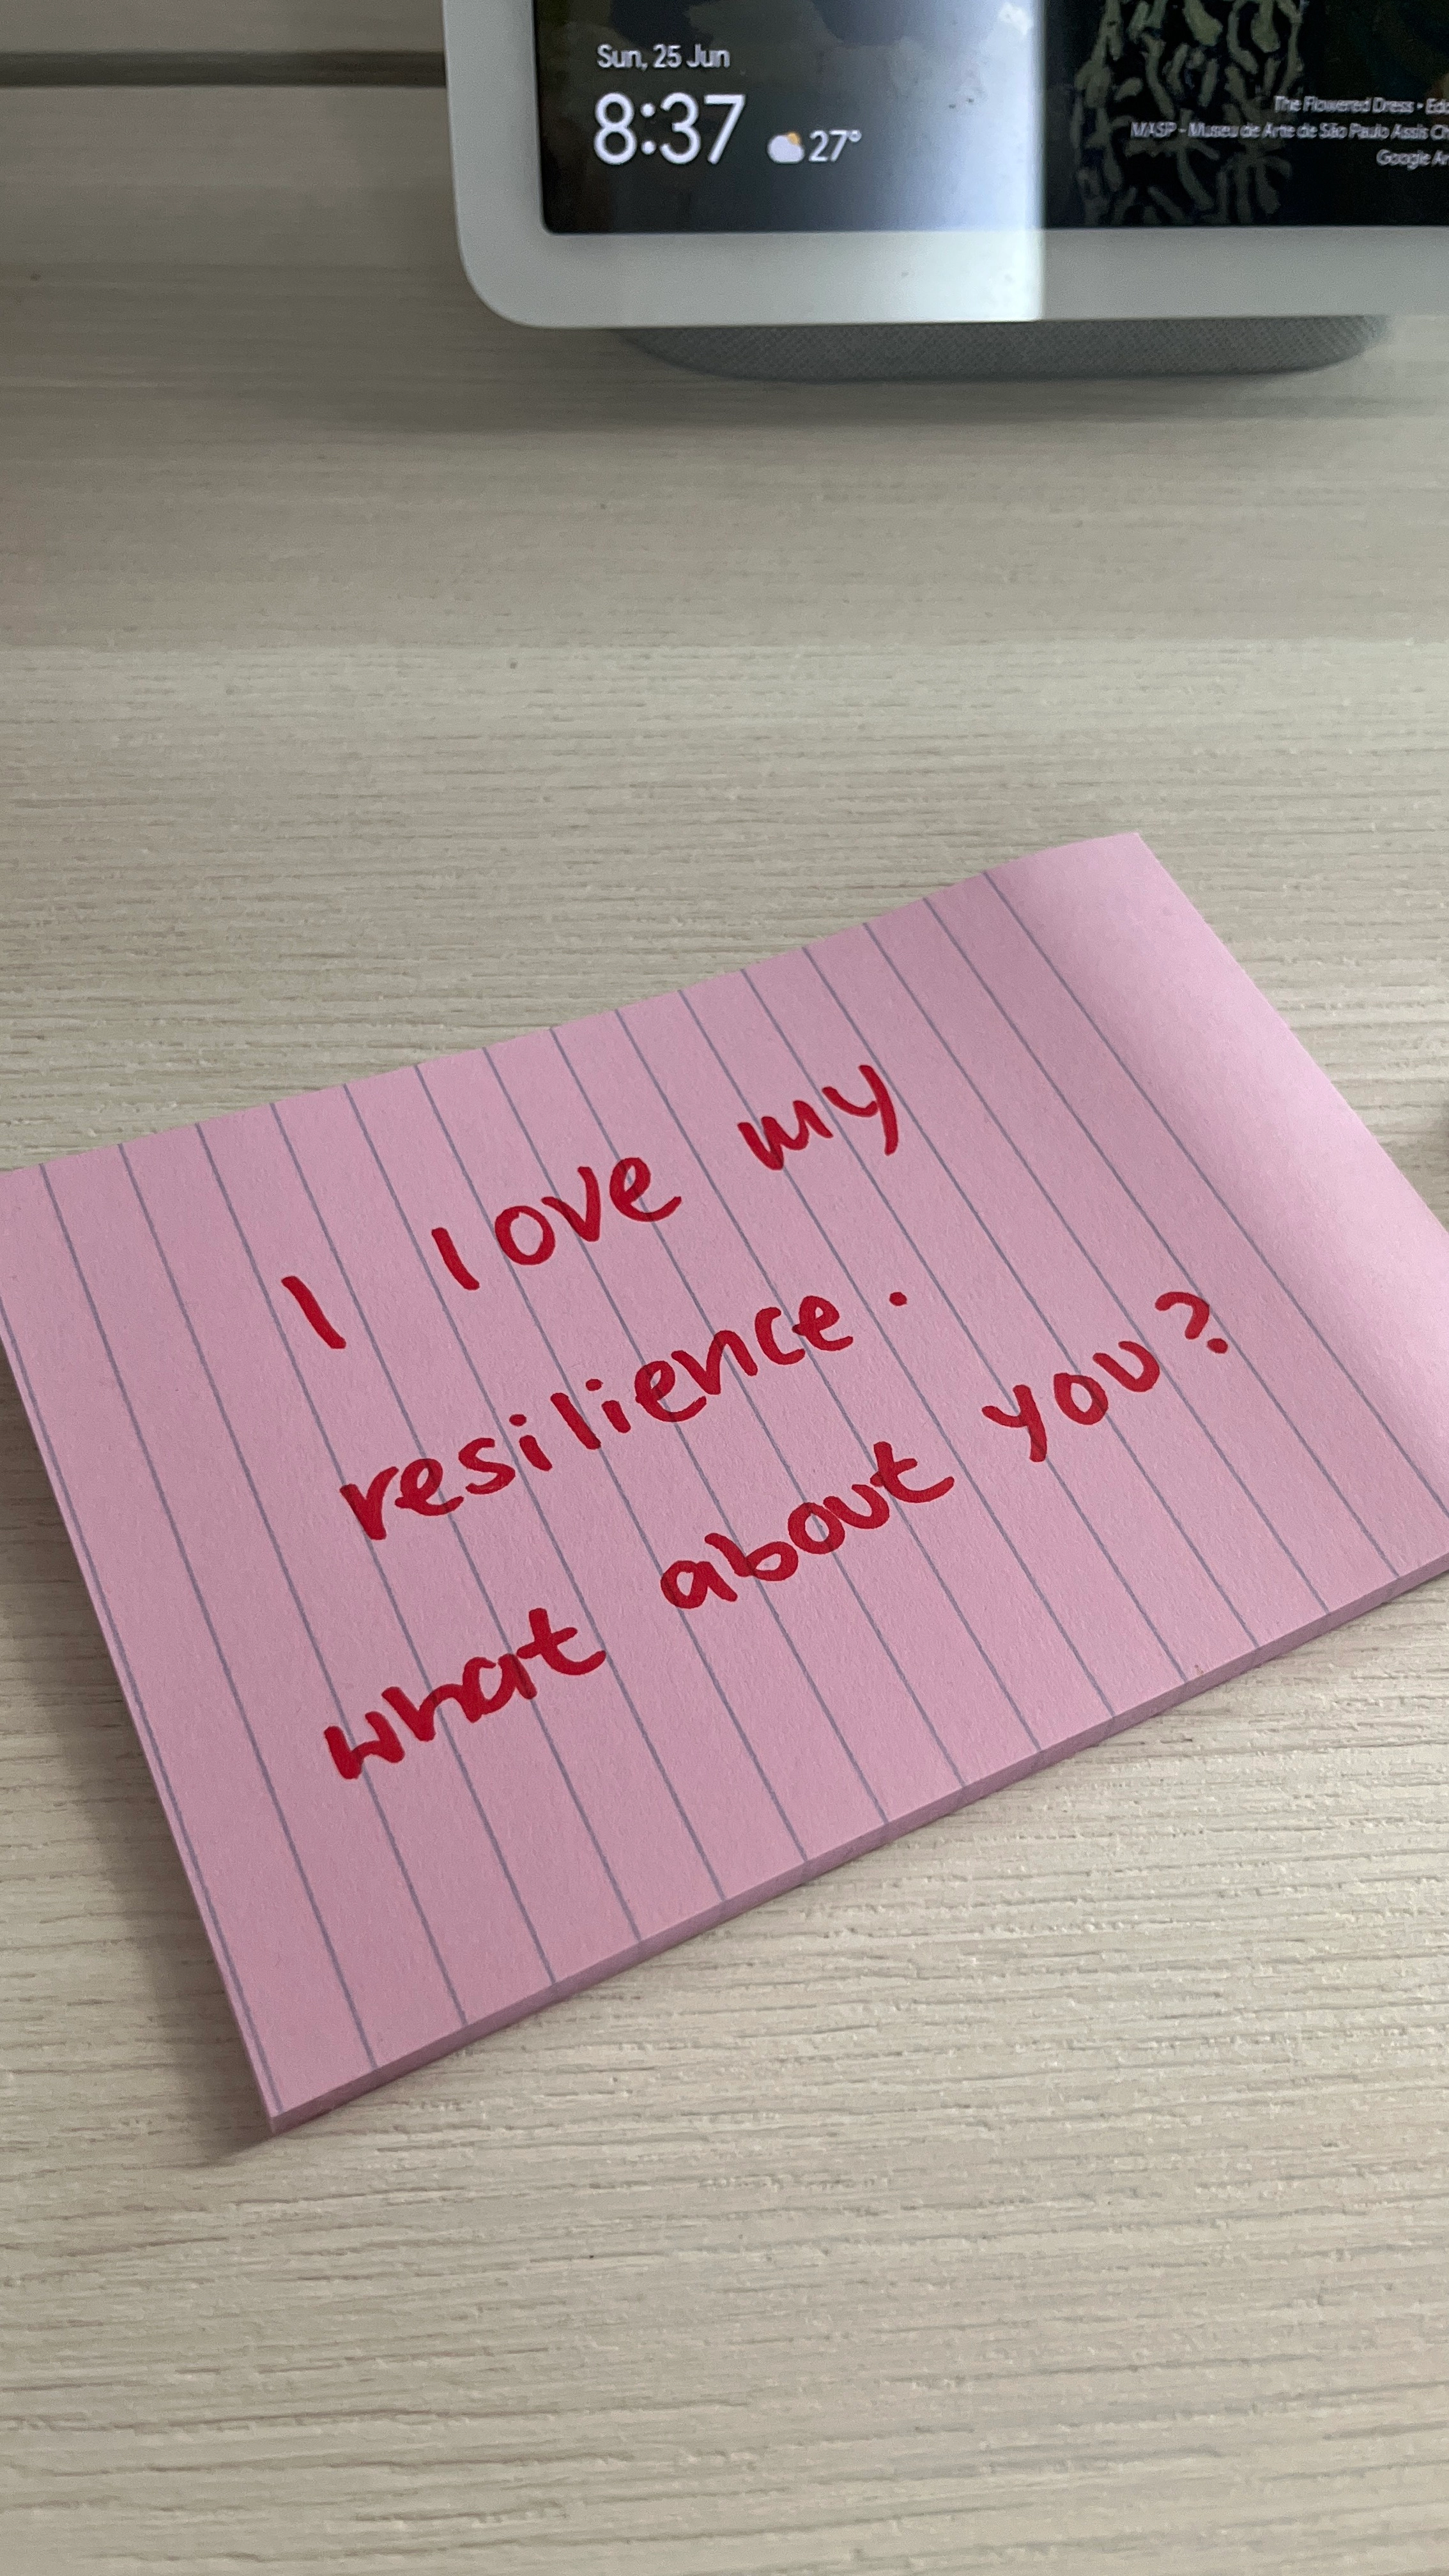 Sun, 25 Jun
8:37 27°
The Flowered Dress •
MASP - Museu de Arte de São Paulo Assis
Google
I love my
resilience.
what about you?